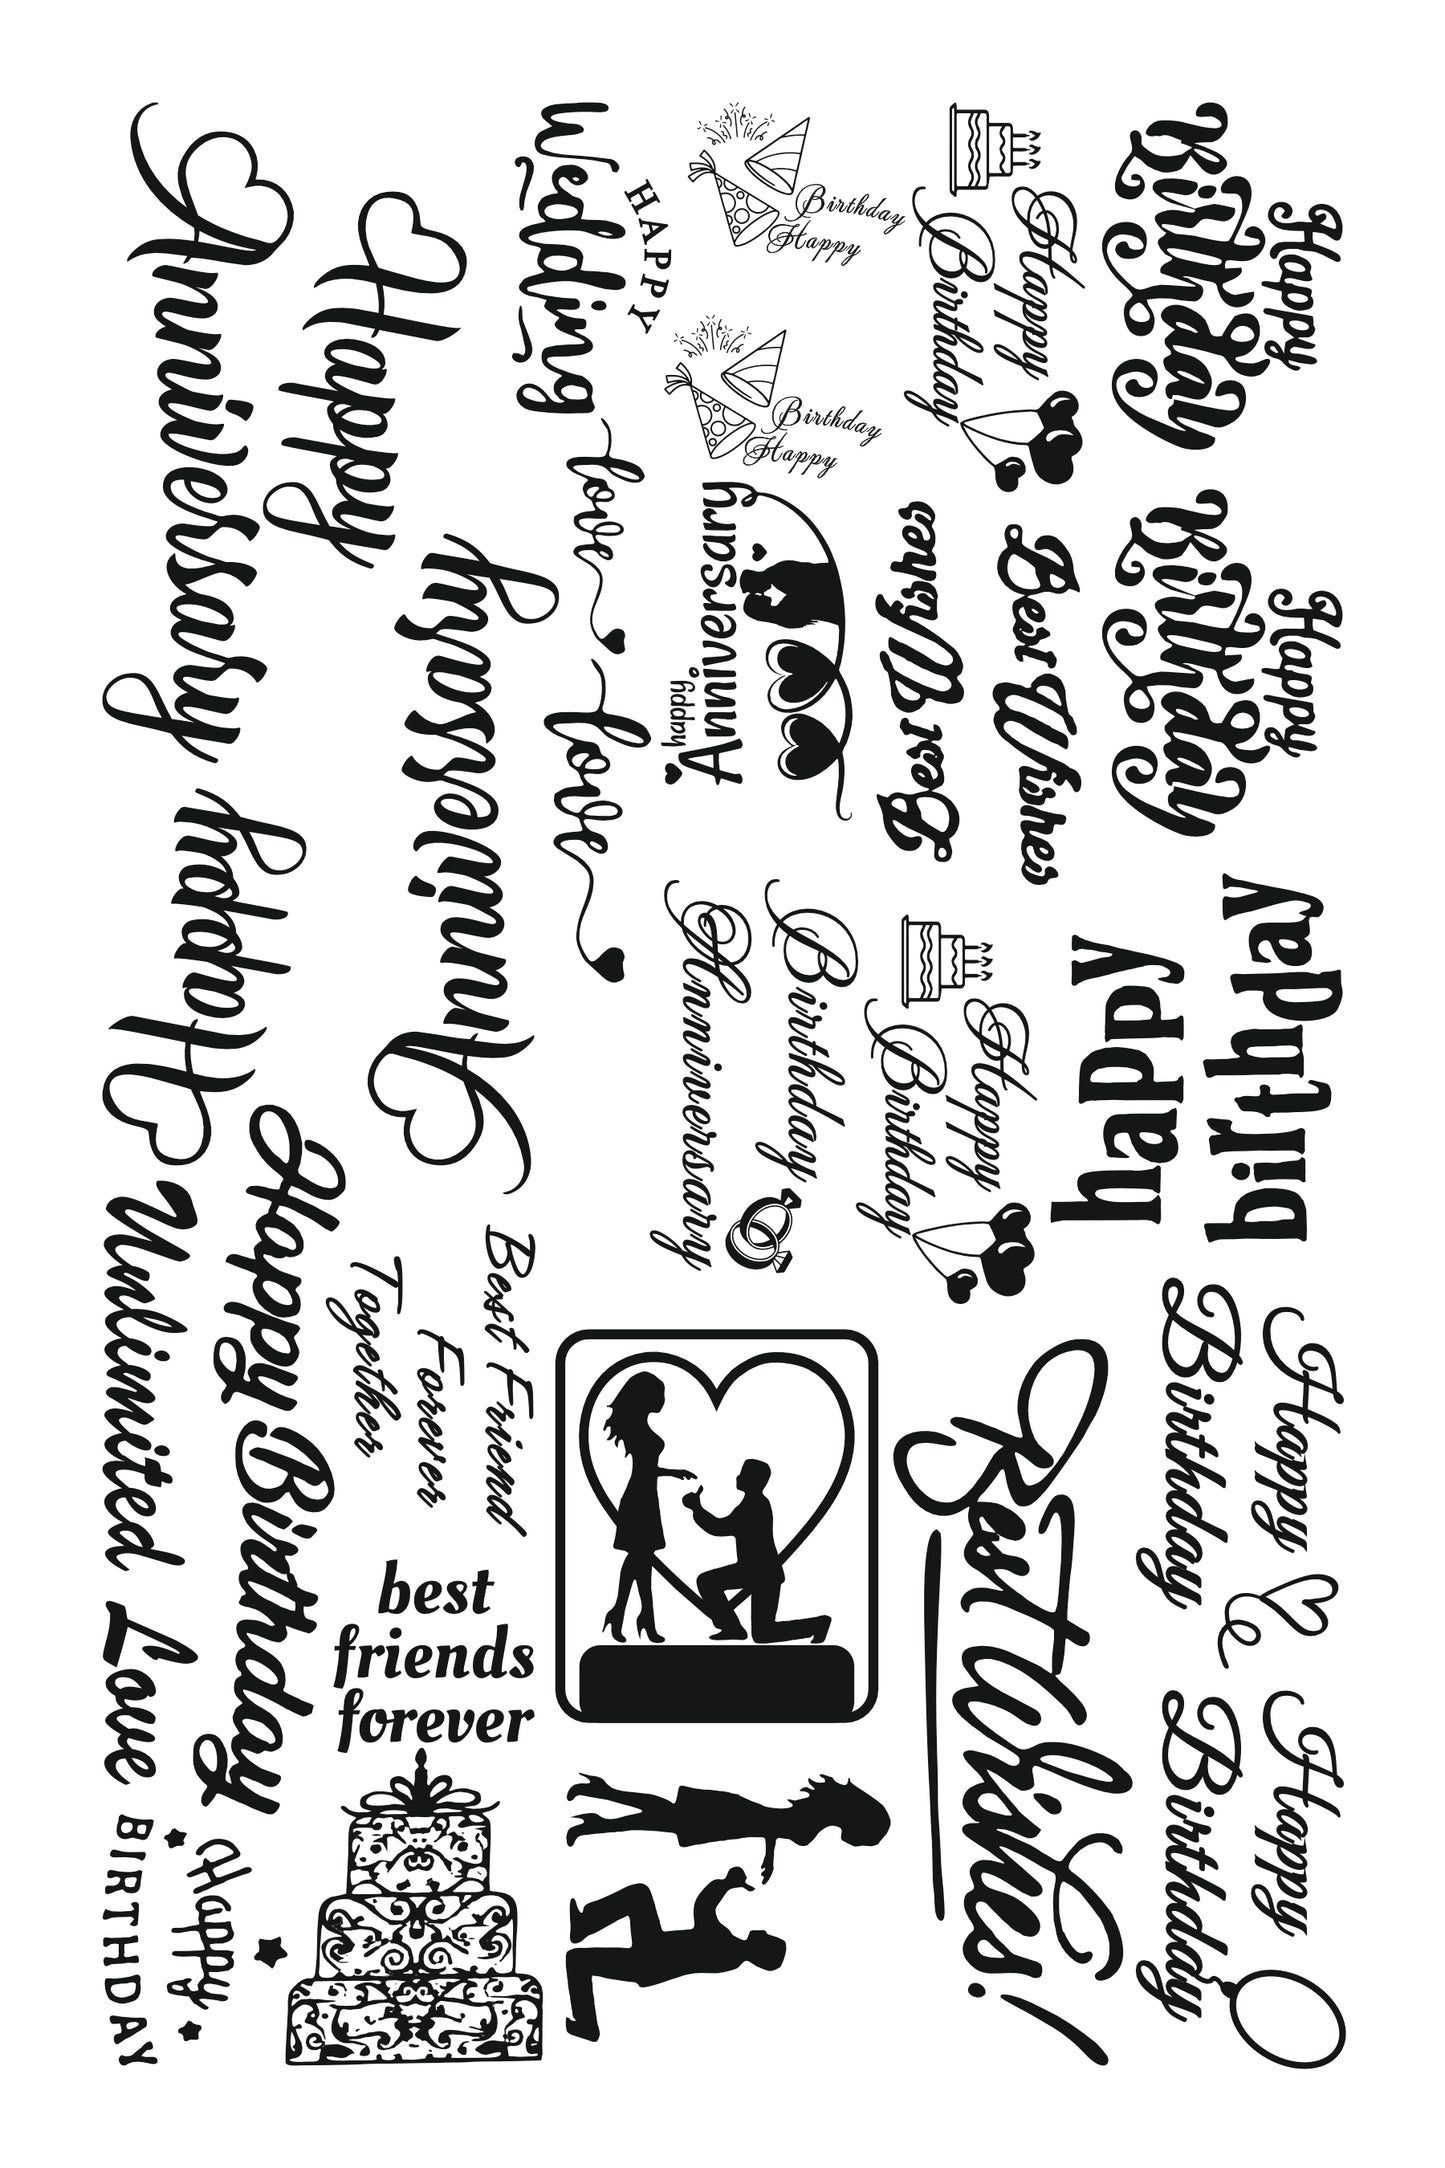 Happy
Anniversary
HAPPY
Wedding
Birthday
Happy
Birthday
Happy
Happy
Birthday
Happy
Birthday
Happy
Birthday
love
love
Happy
Anniversary
Best Wishes
Best Wishes
Happy
Anniversary
Birthday
Anniversary
Happy
Birthday
happy
birthday
Happy Birthday
Unlimited Love
Best Friend
Forever
Together
best
friends
forever
Happy
BIRTHDAY
Best Wishes!
Happy
Birthday
Happy
Birthday